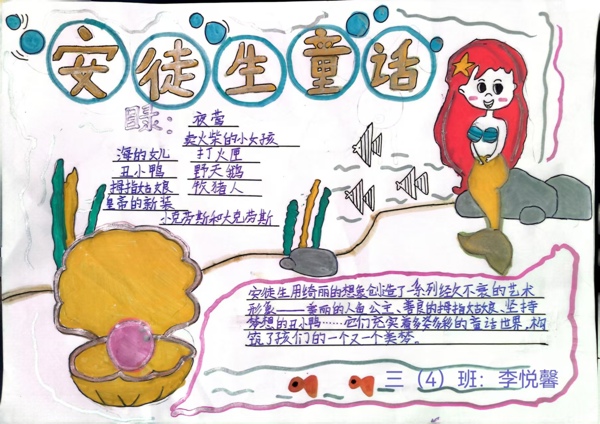 安徒生童话
目录：
夜莺
卖火柴的小女孩
海的女儿 打火匣
丑小鸭 野天鹅
拇指姑娘 牧猪人
皇帝的新装
小克劳斯和大克劳斯
安徒生用绮丽的想象创造了一系列经久不衰的艺术
形象——美丽的人鱼公主、善良的拇指姑娘、坚持
梦想的丑小鸭……它们充实着多姿多彩的童话世界,构
筑了孩们的一个又一个美梦。
三（4）班：李悦馨